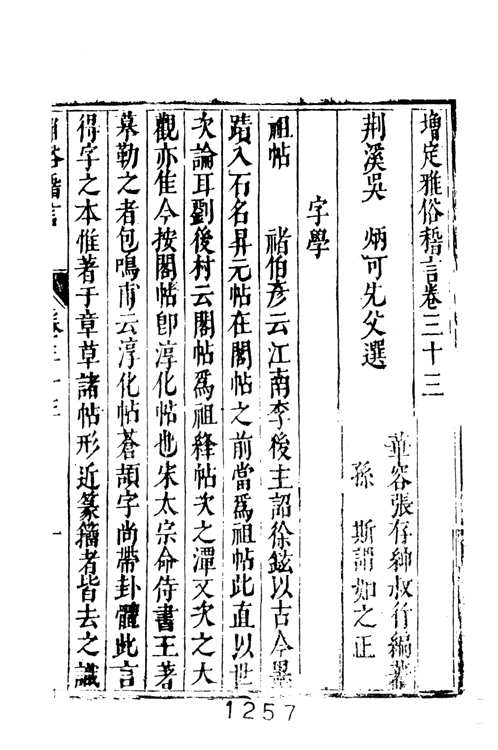 增定雅俗稽言卷三十三
華容張存紳叔行編叢
荆溪吳　炳可先父選
孫　斯謂如之正
字學
祖帖　禇伯彥云江南李後主詔徐鉉以古今墨
蹟入石名昇元帖在閣帖之前當爲祖帖此直以世
次論耳劉後村云閣帖爲祖絳帖次之潭又次之大
觀亦佳今按閣帖卽淳化帖也宋太宗命侍書王著
摹勒之者包鳴甫云淳化帖蒼頡字尚帶卦體此言
得字之本惟著于章草諸帖形近篆籀者皆去之識
俗稽言
卷三十三
一
1257